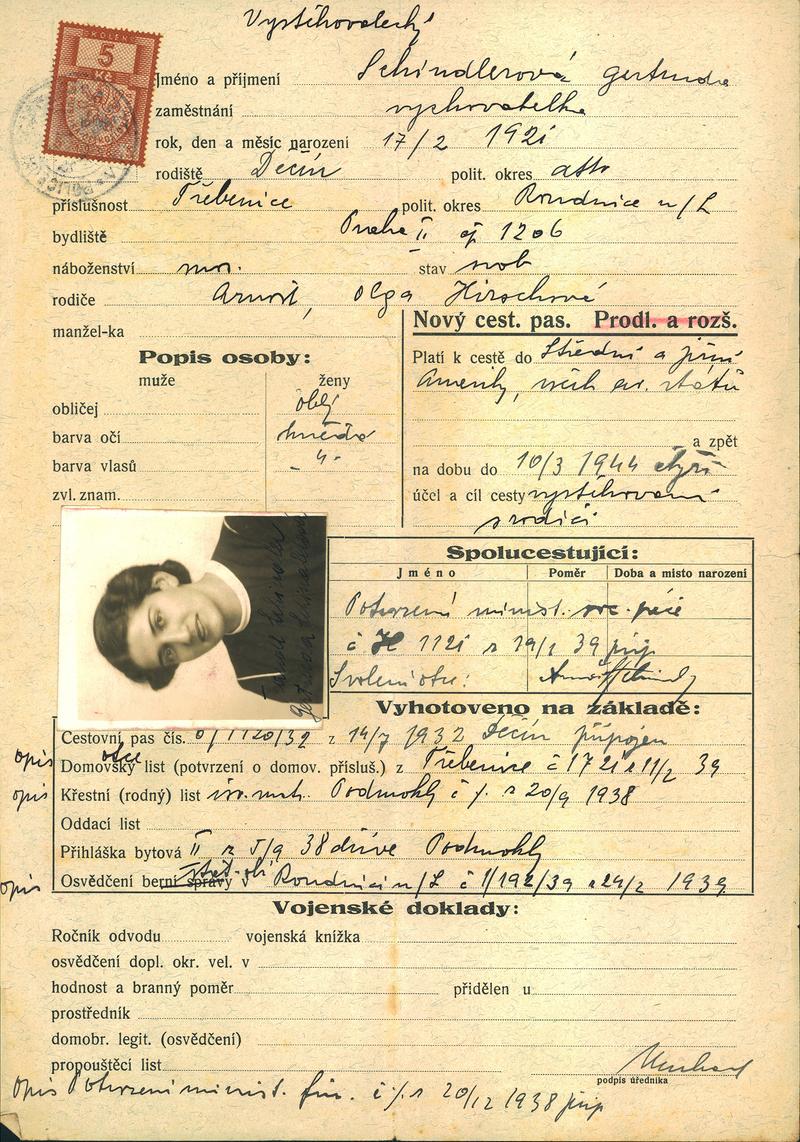 Vystěhovalecký
KOLEK
5
Kč
Jméno a příjmení Schindlerová Gertruda
zaměstnání vychovatelka
rok, den a měsíc narození 17/2 1921
rodiště Děčín polit. okres atto
příslušnost Třebenice polit. okres Roudnice n/L
bydliště Praha II čj 1206
náboženství mos. stav svob
rodiče Arnošt, Olga Hirschová
manžel-ka
Nový cest. pas. Prodl. a rozš.
Popis osoby:
muže ženy
obličej oblý
barva očí hnědé
barva vlasů - „ -
zvl. znam.
Platí k cestě do Střední a jižní
Ameriky, všech ev. států
a zpět
na dobu do 10/3 1944 čtyři
účel a cíl cesty vystěhování
s rodiči
Spolucestující:
Jméno Poměr Doba a místo narození
Potvrzení minist. soc. péče
č 1121 z 19/1 39 přip
Svolení otce:
Gertruda Schindlerová
Vyhotoveno na základě:
Cestovní pas čís. 1120/32 z 14/7 1932 Děčín připojen
opis Domovský otce list (potvrzení o domov. přísluš.) z Třebenice č 1721 z 11/2 39
opis Křestní (rodný) list isr. mat. Podmokly č /. z 20/9 1938
Oddací list
Přihláška bytová II z 5/9 38 dříve Podmokly
opis Osvědčení berní správy v Roudnici n/L č 1/192/39 z 24/2 1939
Vojenské doklady:
Ročník odvodu vojenská knížka
osvědčení dopl. okr. vel. v
hodnost a branný poměr přidělen u
prostředník
domobr. legit. (osvědčení)
propouštěcí list
podpis úředníka
opis Potvrzení minist. fin. č /. z 20/12 1938 přip